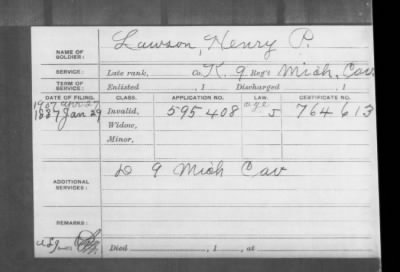 NAME OF SOLDIER: Lawson, Henry P.
SERVICE: Late rank, Co. K, 9 Reg't Mich. Cav
TERM OF SERVICE: Enlisted , 1 Discharged , 1
DATE OF FILING. CLASS. APPLICATION NO. LAW. CERTIFICATE NO.
1907 apr 27 age
1887 Jan 29 Invalid, 595408 J 764613
Widow,
Minor,
ADDITIONAL SERVICES: D 9 Mich Cav
REMARKS:
Died , 1 , at